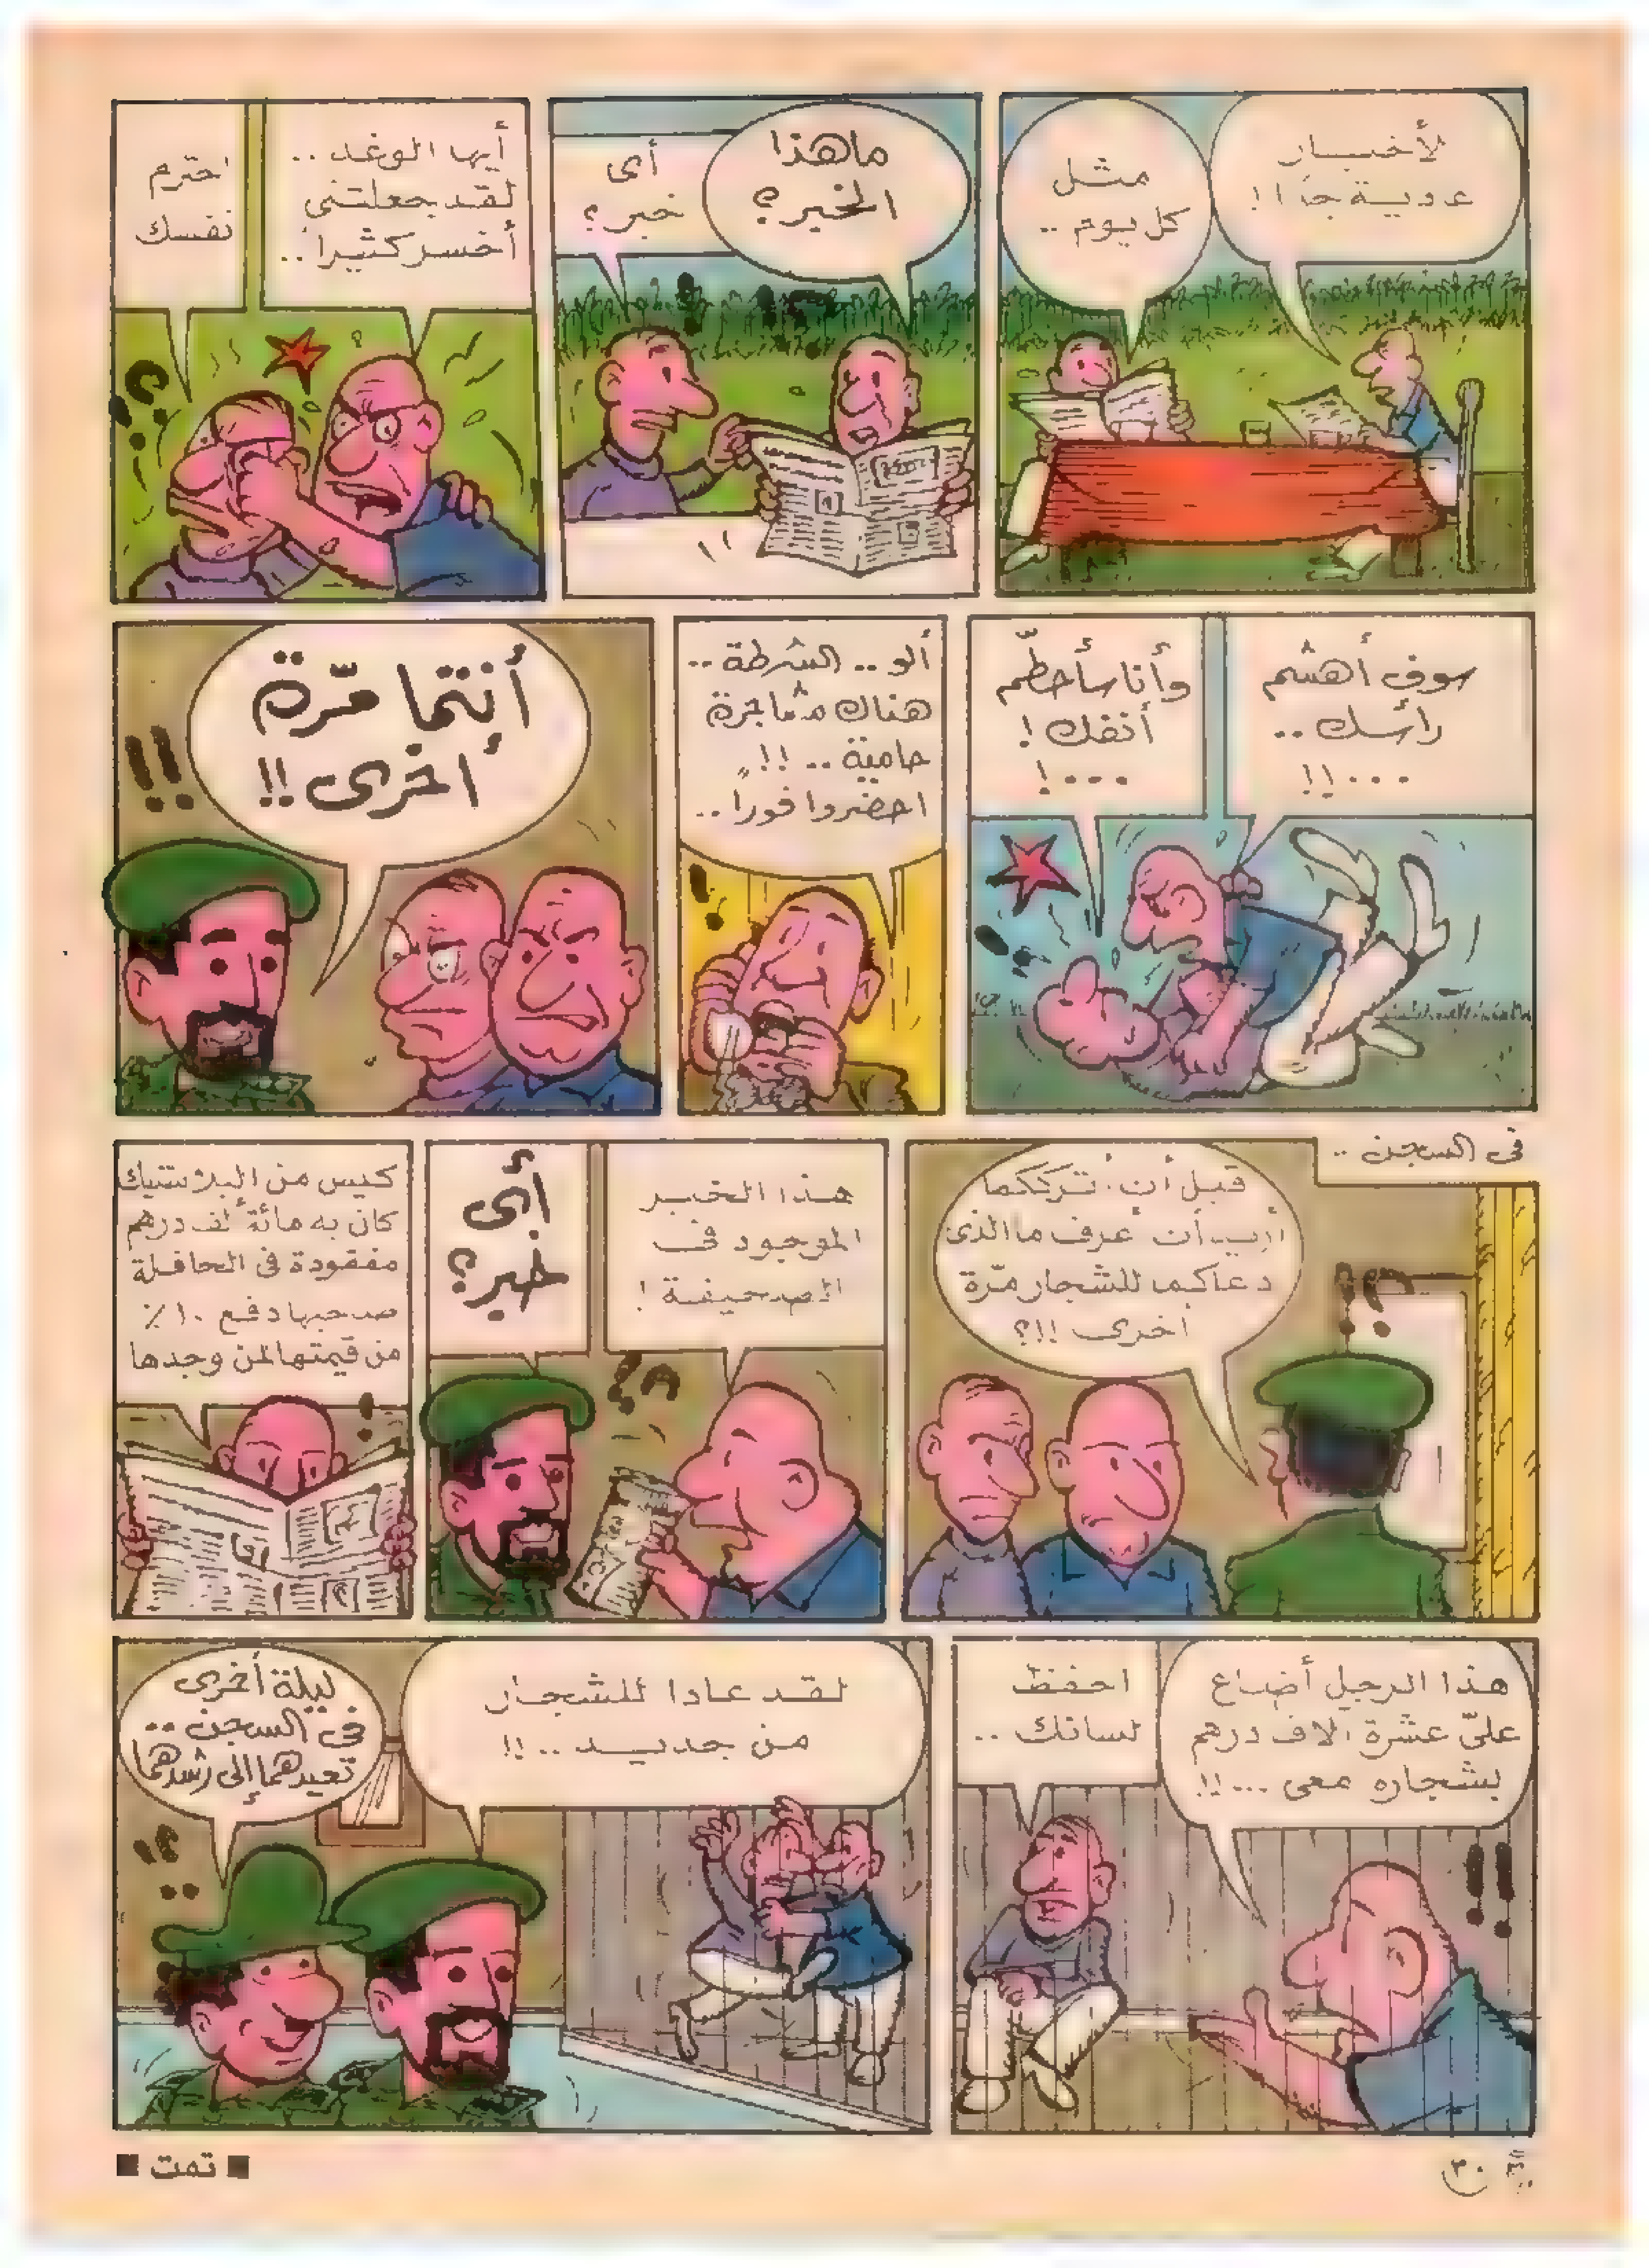 الأخبار
عادية جدا !!
مثل
كل يوم ..
ما هذا
الخبر ؟
أى
خبر ؟
أيها الوغد ..
لقد جعلتنى
أخسر كثيرا ..
احترم
نفسك
سوف أهشم
رأسك ..
...!!
وأنا سأحطّم
أنفك !
...!
ألو .. الشرطة ..
هناك مشاجرة
حامية .. !!
احضروا فورا ..
أنتما مّرة
أخرى !!
فى السجن ..
قبل أن أترككما
أريد أن أعرف ما الذى
دعاكما للشجار مّرة
أخرى !!؟
هذا الخبر
الموجود فى
الصحيفة !
أى
خبر ؟
كيس من البلاستيك
كان به مائة ألف درهم
مفقودة فى الحافلة
صاحبها دفع ١٠٪
من قيمتها لمن وجدها
هذا الرجل أضاع
علىّ عشرة آلاف درهم
بشجاره معى ...!!
احفظ
لسانك ..
لقد عادا للشجار
من جديد .. !!
ليلة أخرى
فى السجن ..
تعيدهما إلى رشدهما
٣٠
■ تمت ■